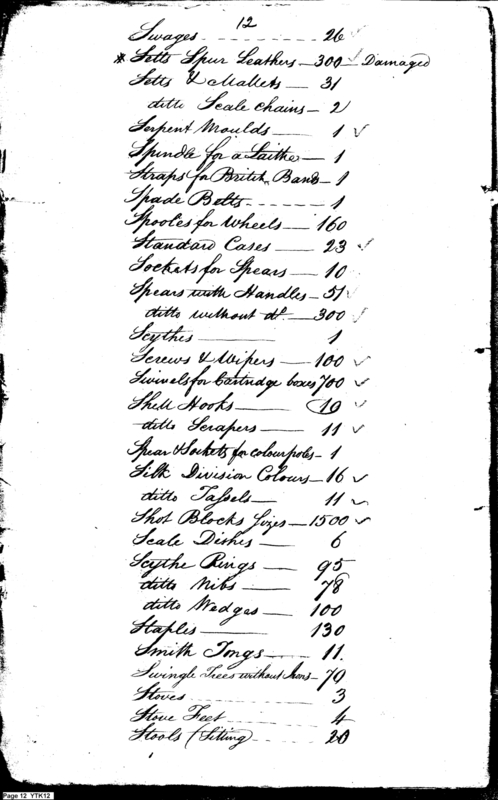 12
Swages - - - - - - - 26 ✓
* Setts Spur Leathers - 300 ✓ Damaged
Setts & Mallets - 31
ditto Scale chains - 2
Serpent Moulds — 1 ✓
Spindle for a Laithe - 1
Straps for British Band - 1
Spade Belts - - - - - - 1
Spooles for Wheels — 160
Standard Cases — 23 ✓
Sockets for Spears — 10
Spears with Handles - 51 ✓
ditto without do. — 300 ✓
Scythes ——— 1
Screws & Wipers — 100 ✓
Swivels for Cartridge boxes 700 ✓
Shell Hooks — 10 ✓
ditto Scrapers — 11 ✓
Spear & Sockets for colour poles - 1
Silk Division Colours — 16 ✓
ditto Tassels — 11 ✓
Shot Blocks Sizes — 1500 ✓
Scale Dishes — 6
Scythe Rings — 95
ditto Nibs — 78
ditto Wedges — 100
Staples ——— 130
Smith Tongs — 11.
Swingle Trees without Irons - 70
Stoves - - - - - - - 3
Stove Feet - - - - - - 4
Stools (Sitting) - - - - 20
Page 12 YTK12